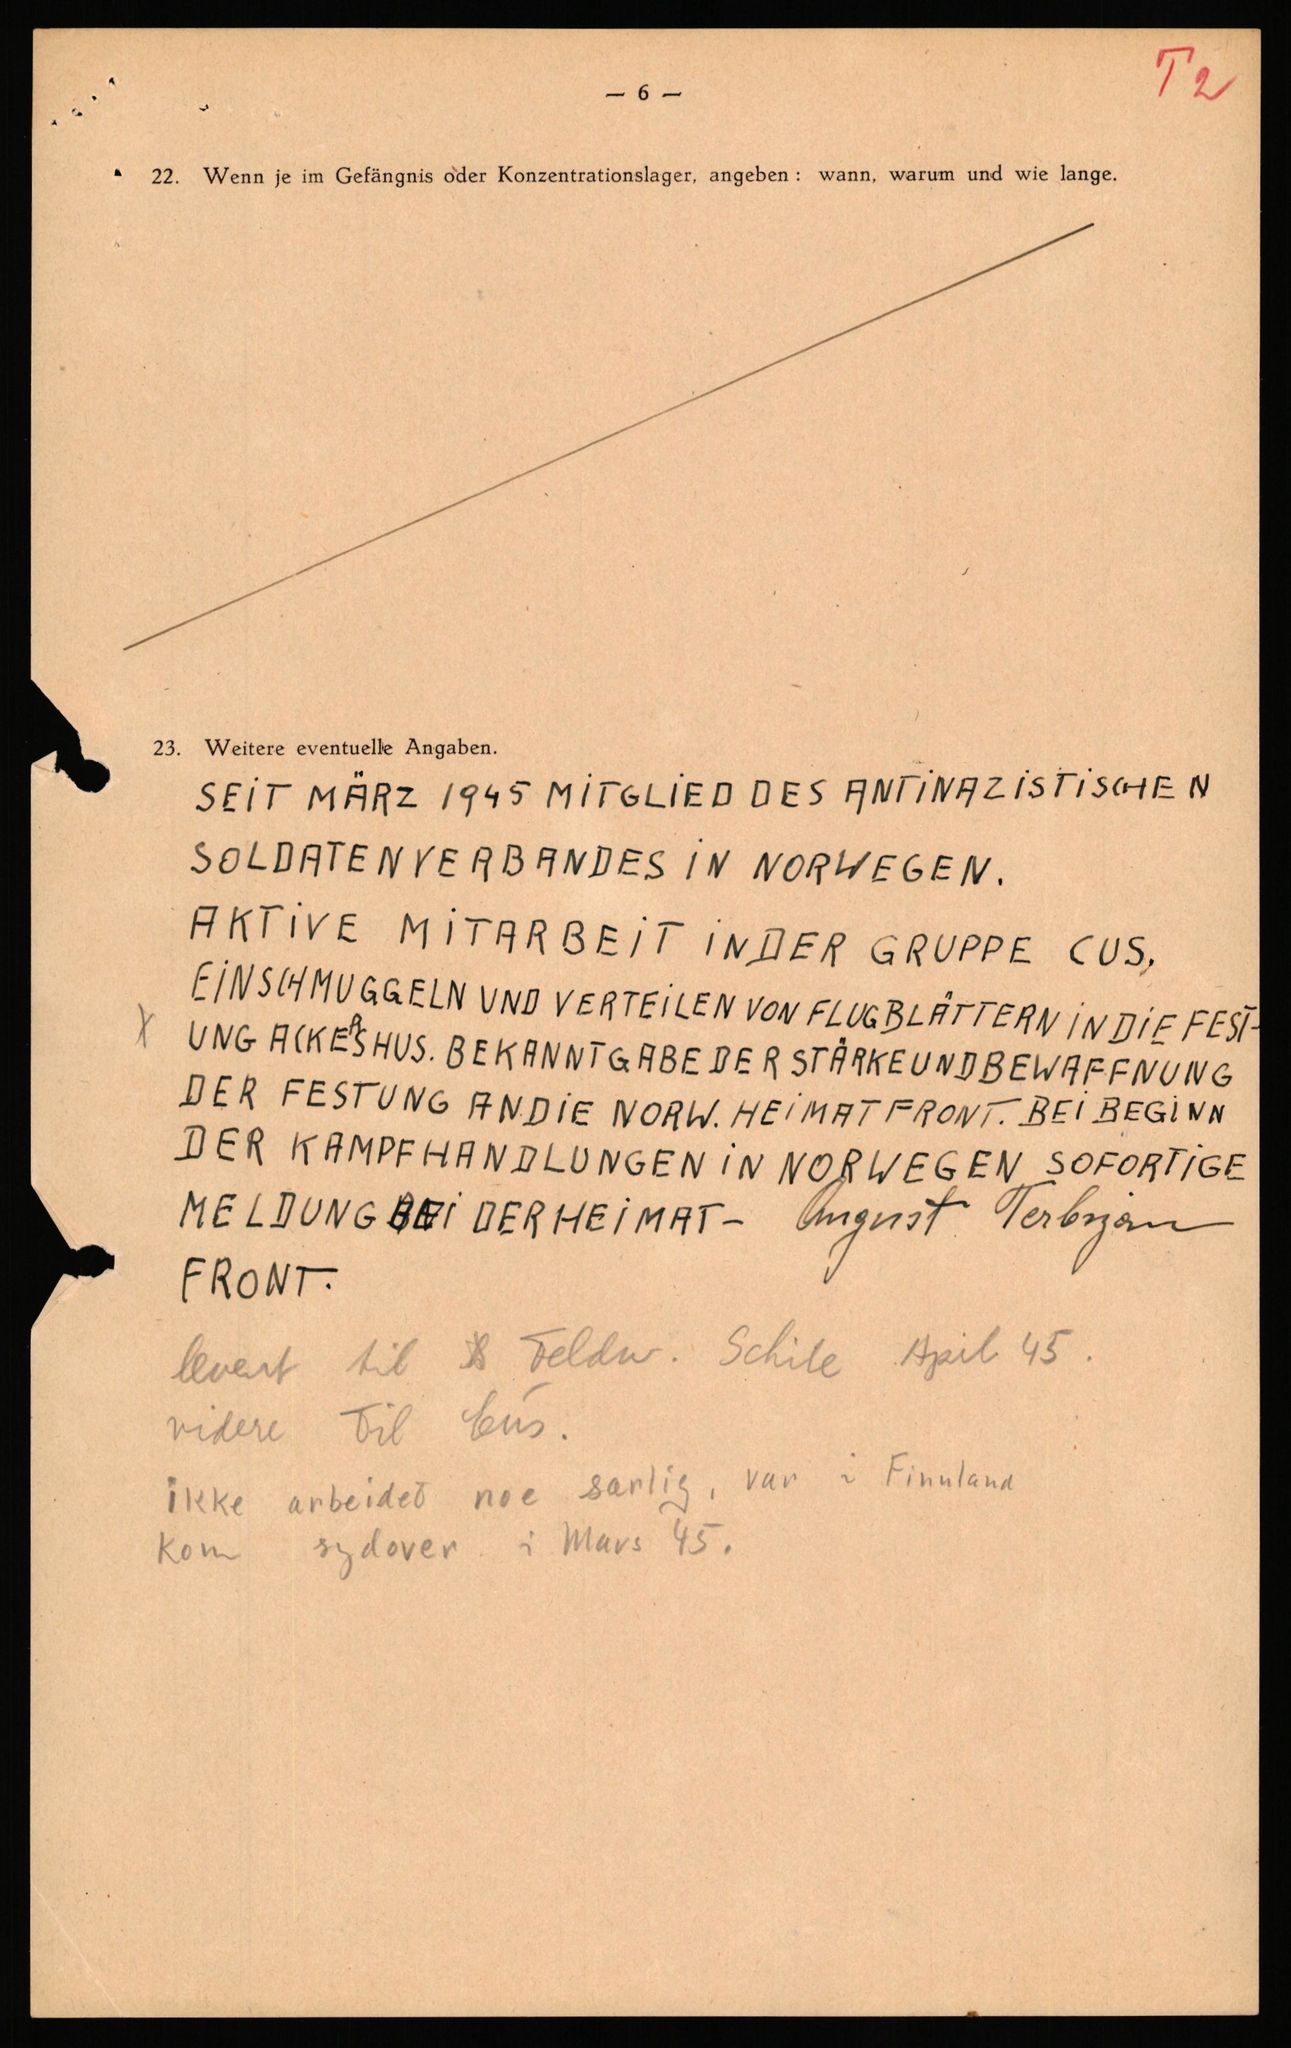 T 2
— 6 —
22. Wenn je im Gefängnis oder Konzentrationslager, angeben: wann, warum und wie lange.
23. Weitere eventuelle Angaben.
SEIT MÄRZ 1945 MITGLIED DES ANTINAZISTISCHEN
SOLDATENVERBANDES IN NORWEGEN.
AKTIVE MITARBEIT IN DER GRUPPE CUS,
EINSCHMUGGELN UND VERTEILEN VON FLUGBLÄTTERN IN DIE FEST-
X UNG ACKERSHUS. BEKANNTGABE DER STÄRKE UND BEWAFFNUNG
DER FESTUNG AN DIE NORW. HEIMATFRONT. BEI BEGINN
DER KAMPFHANDLUNGEN IN NORWEGEN SOFORTIGE
MELDUNG BEI DER HEIMAT- August
FRONT.
levert til Feldw. Schile April 45.
videre til Cus.
ikke arbeidet noe særlig, var i Finnland
kom sydover i Mars 45.